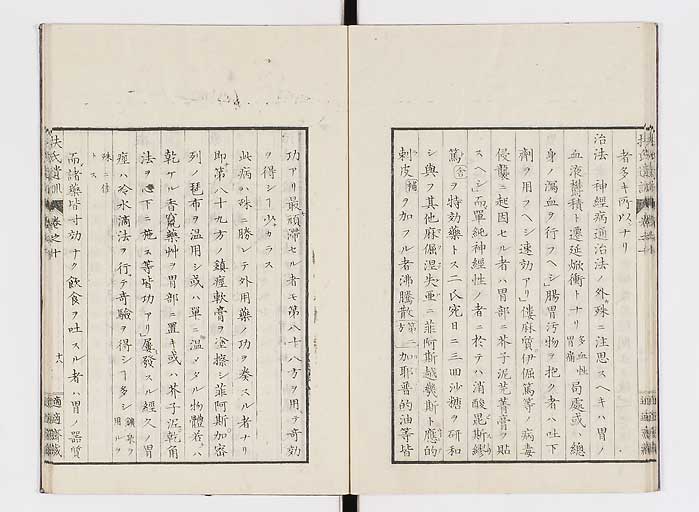 者多キ所以ナリ
治法 神經病通治法ノ外殊ニ注思スヘキハ胃ノ
血液鬱積ト遷延焮衝トナリ多血性胃痛局處或ハ總
身ノ瀉血ヲ行フヘシ」腸胃汚物ヲ抱ク者ハ吐下
劑ヲ用フヘシ速効アリ」僂麻質伊倔篤等ノ病毒
侵襲ニ起因セル者ハ胃部ニ芥子泥芫菁膏ヲ貼
スヘシ」而單純神經性ノ者ニ於テハ消酸毘斯繆
篤ヲ特効藥トス二氏宛日ニ三四沙糖ヲ研和
シ與フ其他麻倔涅失亜ニ菲阿斯越幾斯ト應的
刺皮ヲ加フル者沸騰散方第二加耶普的油等皆
功アリ最頑滯セル者モ第八十八方ヲ用テ奇効
ヲ得シヿ少カラス
此病ハ殊ニ勝レテ外用藥ノ功ヲ奏スル者ナリ
即第八十九方ノ鎮痙軟膏ヲ塗擦シ菲阿斯加密
列ノ琶布ヲ温用シ或ハ單ニ温メタル物體若クハ
乾ケル香竄藥艸ヲ胃部ニ置キ或ハ芥子泥乾角
法ヲ心下ニ施ス等皆功アリ」屢發スル經久ノ胃
痙ハ冷水滴法ヲ行テ奇驗ヲ得シヿ多シ鑛泉ヲ用ルヲ
殊ニ佳トス
而諸藥皆寸効ナク飲食ヲ吐スル者ハ胃ノ器質
扶氏遺訓 巻之十
十八
適適齋藏